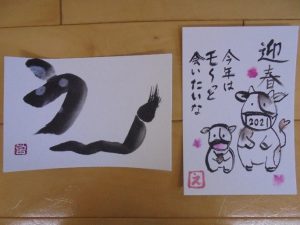 うし
迎春
今年は
モ〜っと
食いたいな
2021
え